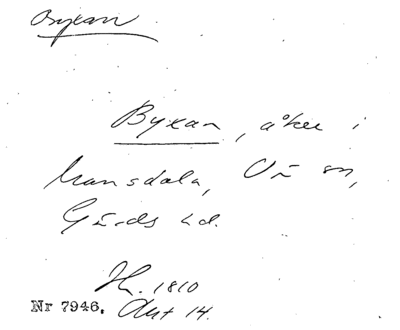 Byxan
Byxan, åker i
Mansdala, Vä sn,
Gärds hd.
Jh. 1810
Nr 7946. Akt 14.